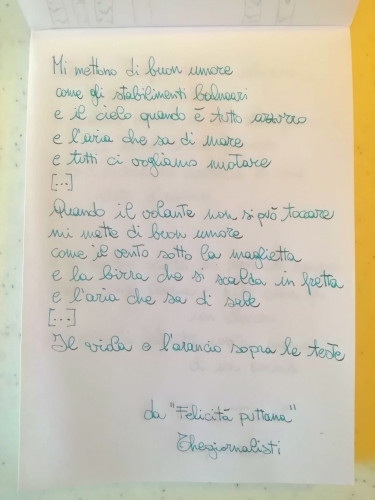 Mi mettono di buon umore
come gli stabilimenti balneari
e il cielo quando è tutto azzurro
e l'aria che sa di mare
e tutti ci vogliamo nuotare
[...]
Quando il volante non si può toccare
mi mette di buon umore
come il vento sotto la maglietta
e la birra che si scalda in fretta
e l'aria che sa di sale
[...]
Il viola e l'arancio sopra le teste
da "Felicità puttana"
Thegiornalisti